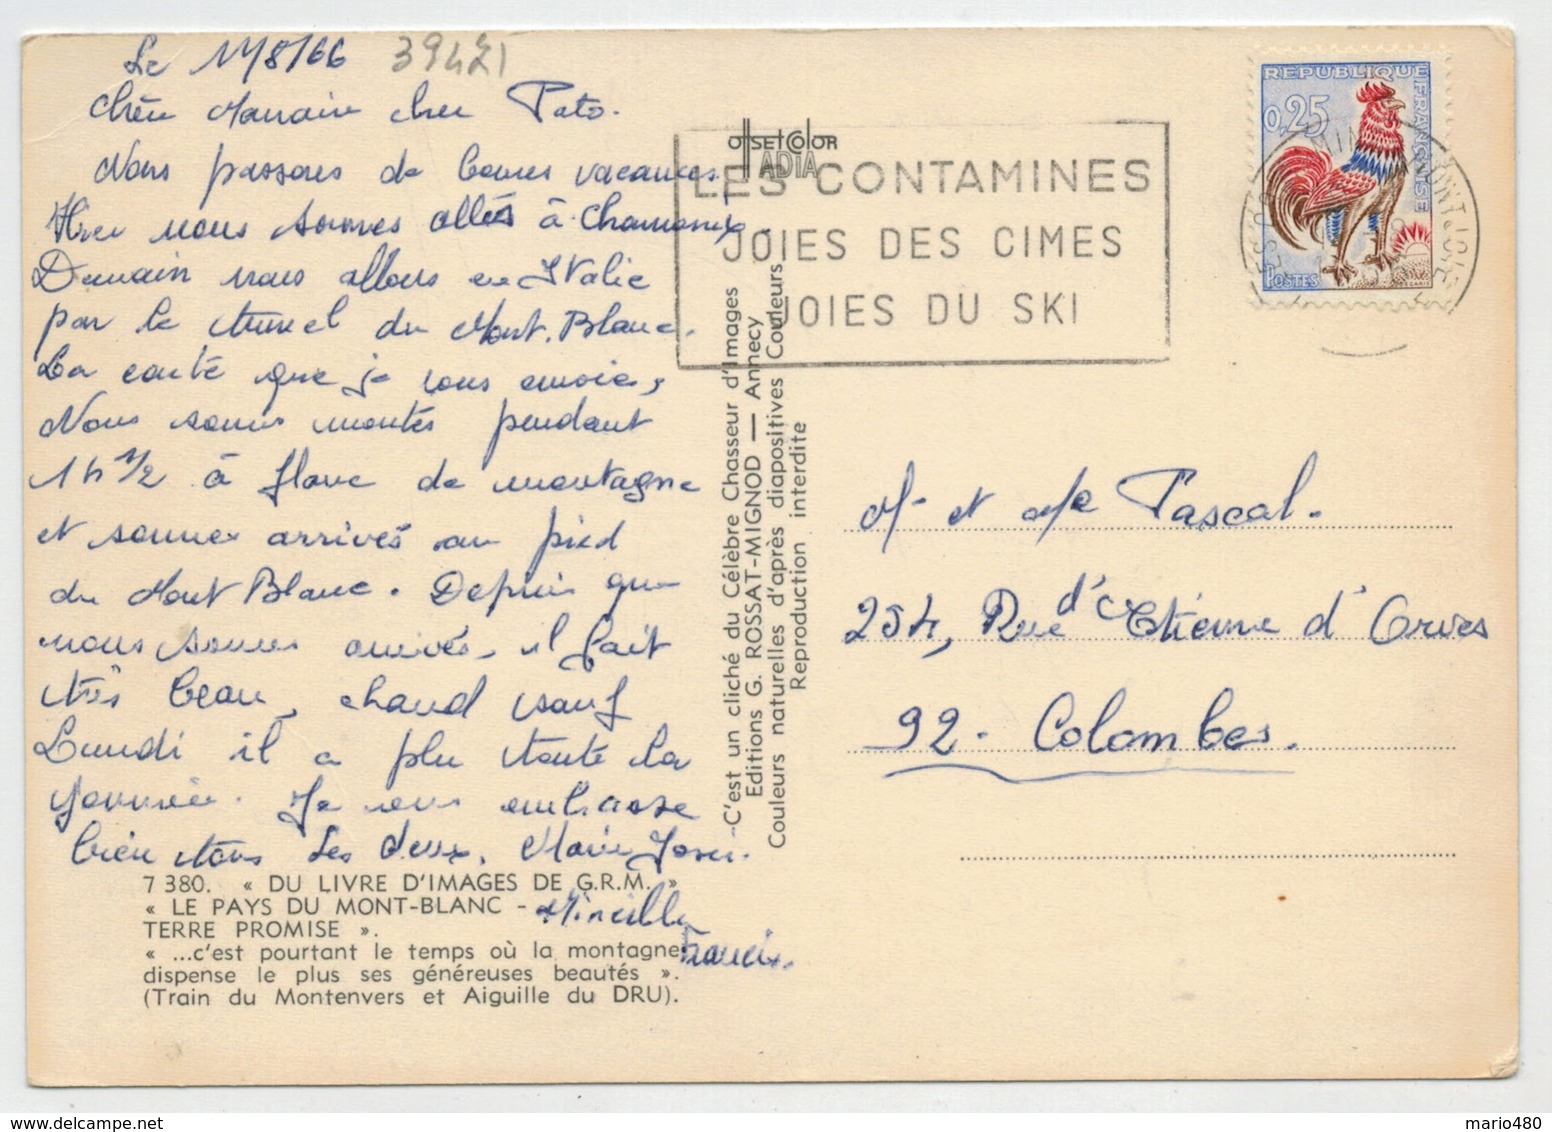 Le 11/8/66 39421
Chère Marraine cher Pato.
Nous passons de bonnes vacances.
Hier nous sommes allés à Chamonix.
Demain nous allons en Italie
par le tunnel du Mont-Blanc.
La carte que je vous envoie,
Nous sommes montés pendant
1h 1/2 à flanc de montagne
et sommes arrivés au pied
du Mont Blanc. Depuis que
nous sommes arrivés, il fait
très beau, chaud sauf
Lundi il a plu toute la
journée. Je vous embrasse
bien tous les deux. Marie José.
Mireille
Francis.
7 380. « DU LIVRE D'IMAGES DE G.R.M. »
« LE PAYS DU MONT-BLANC -
TERRE PROMISE ».
« ...c'est pourtant le temps où la montagne
dispense le plus ses généreuses beautés ».
(Train du Montenvers et Aiguille du DRU).
OffsetColor
ADIA
C'est un cliché du Célèbre Chasseur d'Images
Editions G. ROSSAT-MIGNOD — Annecy
Couleurs naturelles d'après diapositives Couleurs
Reproduction interdite
LES CONTAMINES
JOIES DES CIMES
JOIES DU SKI
REPUBLIQUE FRANÇAISE
0,25
POSTES
M. et Me Pascal.
254, Rue d'Etienne d'Orves
92 - Colombes.
mario480